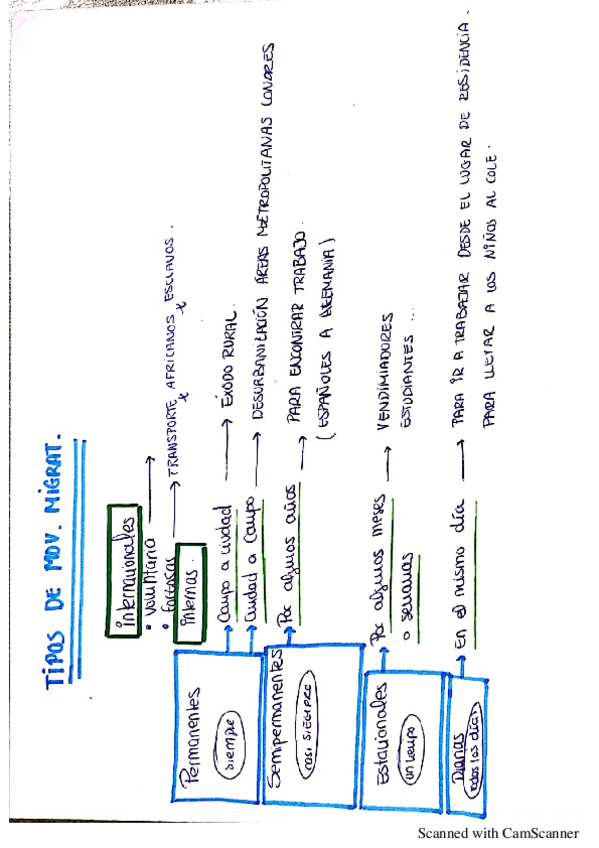 TIPOS DE MOV. MIGRAT.
internacionales
• voluntaria →
• forzosas → TRANSPORTE AFRICANOS x ESCLAVOS.
internas.
Permanentes
siempre
→ Campo a ciudad → ÉXODO RURAL.
→ Ciudad a Campo → DESURBANIZACIÓN ÁREAS METROPOLITANAS LONDRES
Semipermanentes
casi SIEMPRE
→ Por algunos años → PARA ENCONTRAR TRABAJO.
(ESPAÑOLES A ALEMANIA)
Estacionales
un tiempo
→ Por algunos meses → VENDIMIADORES
o semanas ESTUDIANTES ...
Diarias
todos los días
→ En el mismo día → PARA IR A TRABAJAR DESDE EL LUGAR DE RESIDENCIA.
PARA LLEVAR A LOS NIÑOS AL COLE.
Scanned with CamScanner